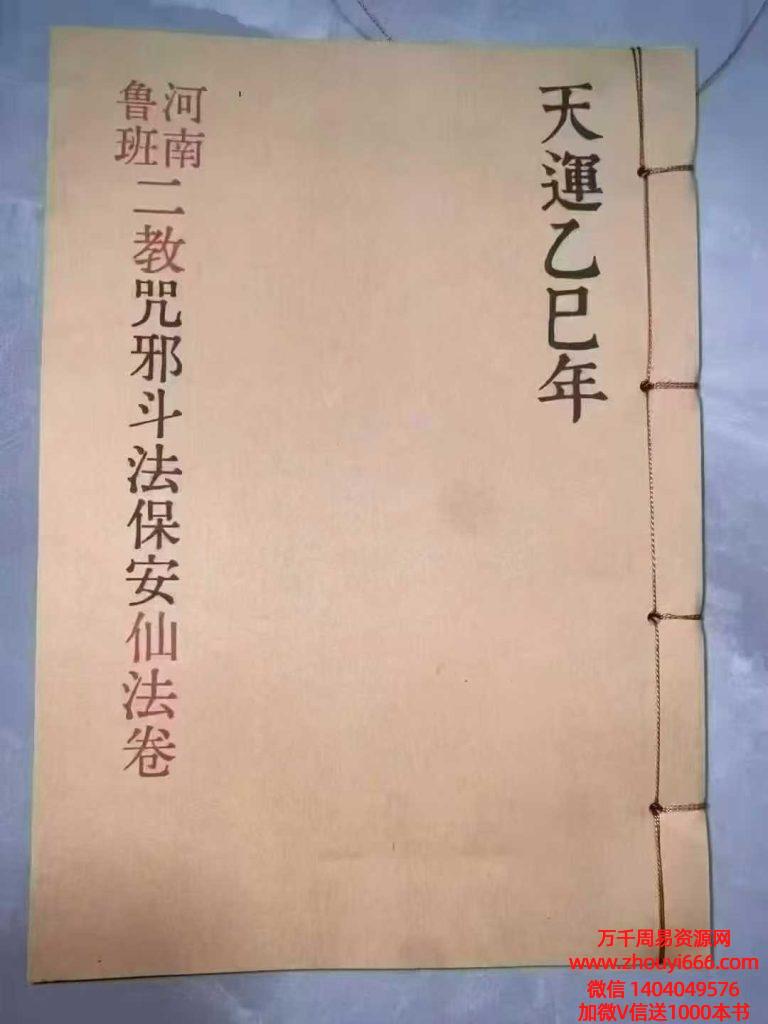 天運乙巳年
河南
鲁班
二教咒邪斗法保安仙法卷
万千周易资源网
www.zhouyi666.com
微信 1404049576
加微V信送1000本书